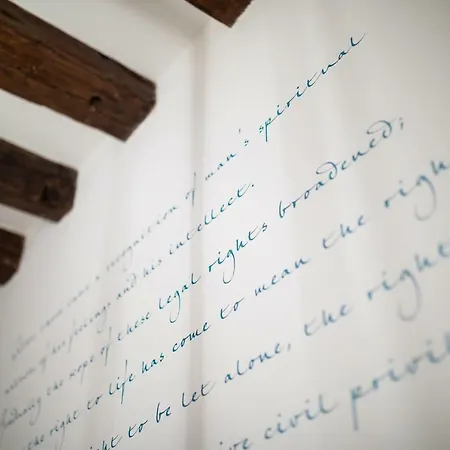 came a recognition of man's spiritual
of his feelings and his intellect.
the scope of these legal rights broadened;
the right to life has come to mean the righ
ght to be let alone, the right
ive civil privil